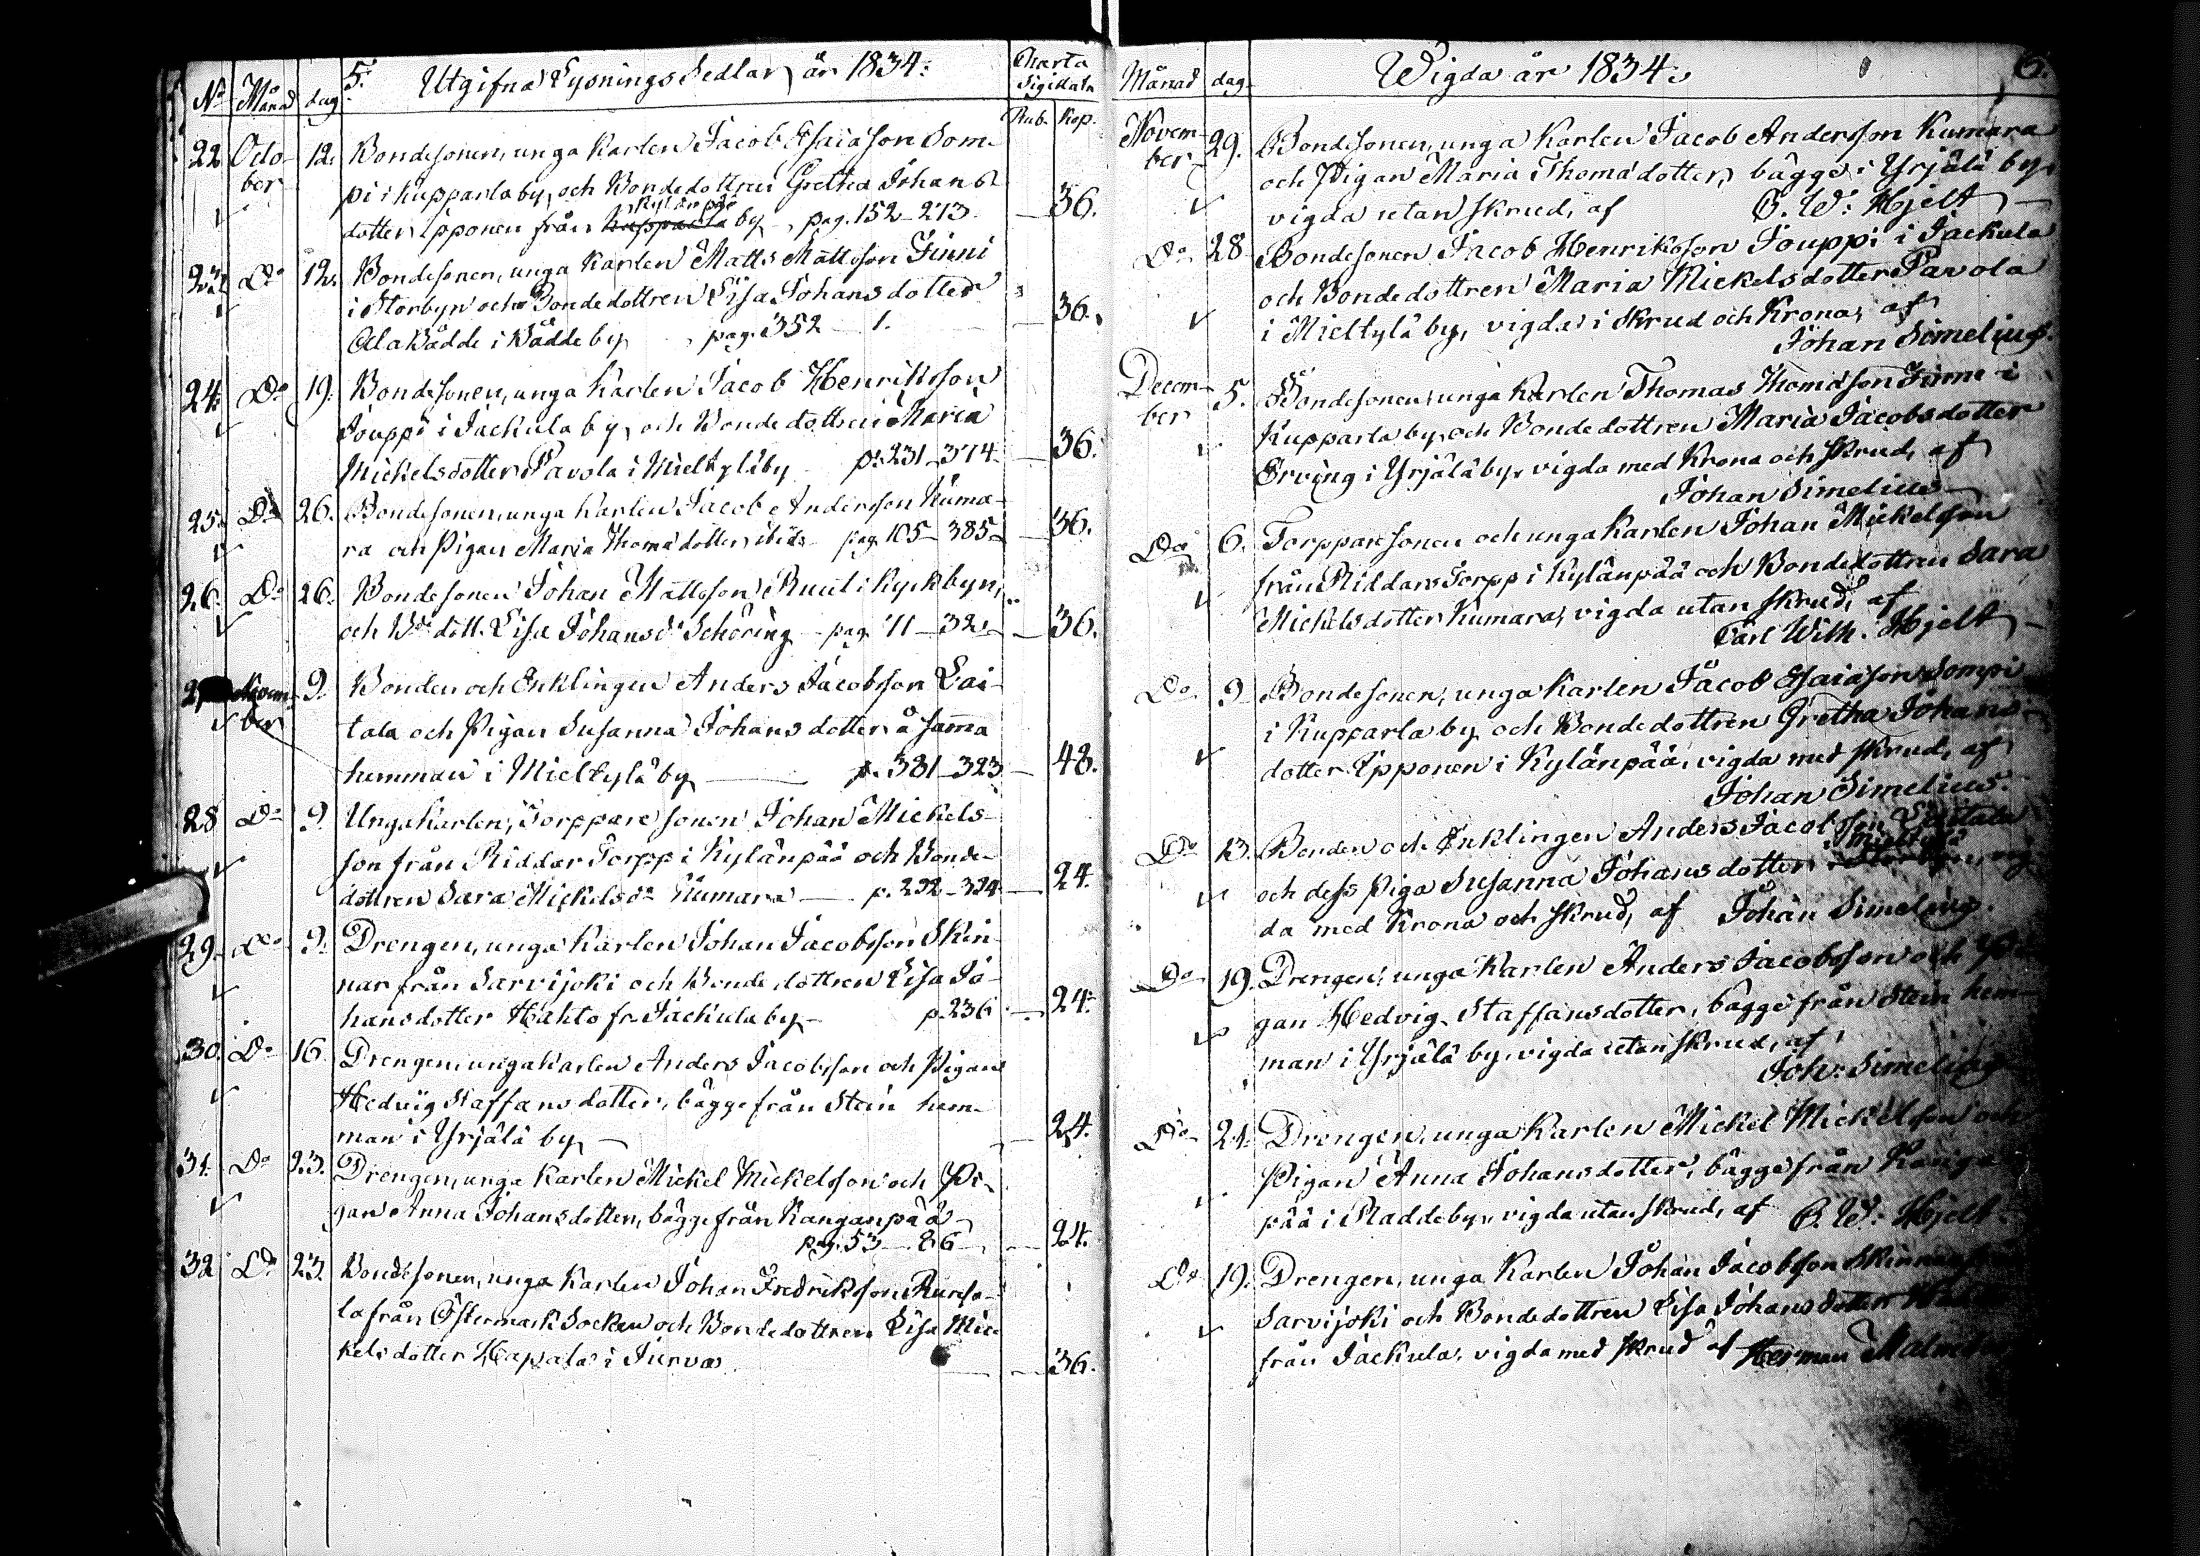 5. Utgifna Lysnings Sedlar, år 1834.
Charta
Sigillata
No Månad dag
Rub. Kop.
22 Octo- 12. Bondesonen, unga Karlen Jacob Esaiason Som-
ber
pi i Kupparla by, och Bondedottren Gretha Johans
Kylänpää
dotter Ipponen från Kupparla by, pag. 152 - 273 — 36.
23. Do 12. Bondesonen, unga Karlen Matts Mattsson Finni
i Storbyn och Bondedottren Lisa Johansdotter
Ala Rådde i Rådde by, pag. 352 — 1. — 36.
24. Do 19. Bondesonen, unga Karlen Jacob Henriksson
Jouppi i Jackula by, och Bondedottren Maria
Mickelsdotter Pavola i Mieltylä by p. 231 - 374 — 36.
25. Do 26. Bondesonen, unga Karlen Jacob Andersson Kuma-
ra och Pigan Maria Thomædotter, ibid. pag. 105 - 385 — 36.
26. Do 26. Bondesonen Johan Mattsson Ruut i Kyrkbyn,
och Bde dott. Lisa Johansdr Schöring pag. 11 - 32 — 36.
27 Novem- 9. Bonden och Enklingen Anders Jacobsson Lai-
ber
tala och Pigan Susanna Johansdotter, å samma
hemman i Mieltylä by — p. 381 - 323 — 48.
28 Do 9. Unga Karlen, Torpparesonen Johan Mickels-
son från Riddars Torpp i Kylänpää och Bonde-
dottren Sara Mickelsdr Kumara — p. 292 - 324 — 24.
29. Do 9. Drengen, unga Karlen Johan Jacobsson Skin-
nar från Sarvijoki och Bondedottren Lisa Jo-
hansdotter Hahto fr. Jackula by — p. 236 — 24.
30. Do 16 Drengen, unga Karlen Anders Jacobsson och Pigan
Hedvig Staffansdotter, bägge från Stein hem-
man i Yrjälä by, — 24.
31. Do 23. Drengen, unga Karlen Mickel Mickelsson och Pi-
gan Anna Johansdotter, bägge från Kanganpää
pag. 53 — 86 — 24.
32 Do 23. Bondesonen, unga Karlen Johan Fredriksson
la från Östermark Socken och Bondedottren Lisa Mic-
kelsdotter Hapala i Jurva. — 36.
Wigda år 1834.
6.
Månad dag.
Novem- 29. Bondesonen, unga Karlen Jacob Andersson Kumara
ber
och Pigan Maria Thomædotter, bägge i Yrjälä by,
vigda utan skrud, af C. W. Hjelt
Do 28 Bondesonen Jacob Henriksson Jouppi i Jackula
och Bondedottren Maria Mickelsdotter Pavola
i Mieltylä by, vigda i Skrud och Krona, af
Johan Simelius.
Decem- 5. Bondesonen, unga Karlen Thomas Thomasson Finne i
ber
Kupparla by, och Bondedottren Maria Jacobsdotter
Erving i Yrjälä by, vigda med Krona och skrud, af
Johan Simelius
Do 6. Torpparesonen och unga Karlen Johan Mickelsson
från Riddars Torpp i Kylänpää och Bondedottren Sara
Mickelsdotter Kumara, vigda utan skrud, af
Carl Wilh. Hjelt
Do 9 Bondesonen, unga Karlen Jacob Esaiason Sompi
i Kupparla by, och Bondedottren Gretha Johans-
dotter Ipponen i Kylänpää, vigda med skrud, af
Johan Simelius.
Do 13. Bonden och Enklingen Anders Jacobsson Laitala
och dess Piga Susanna Johansdotter i Mieltylä
da med Krona och skrud, af Johan Simelius.
Do 19. Drengen, unga Karlen Anders Jacobsson och Pi
gan Hedvig Staffansdotter, bägge från Stein hem-
man i Yrjälä by, vigda utan skrud, af
Joh: Simelius
Do 21. Drengen, unga Karlen Mickel Mickelsson och
Pigan Anna Johansdotter, bägge från Kangan
pää i Råddeby, vigda utan skrud, af C. W. Hjelt
Do 19. Drengen, unga Karlen Johan Jacobsson Skinnar
Sarvijoki och Bondedottren Lisa Johansdotter
från Jackula, vigda med skrud af Herman